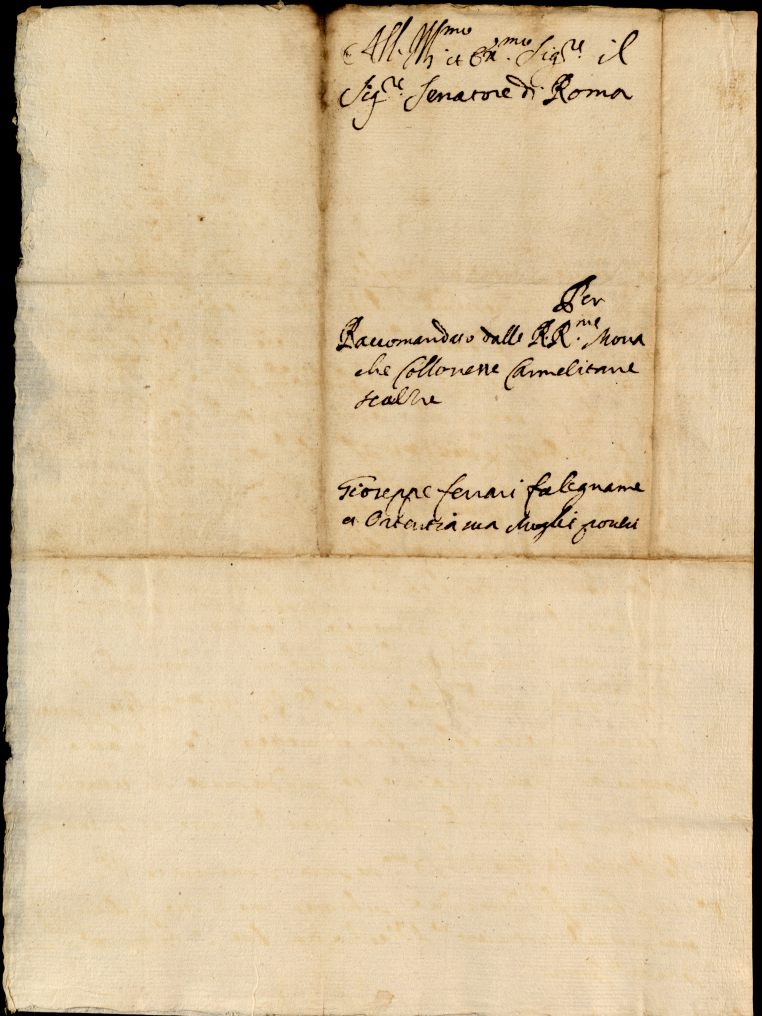 All Ill.mo et Ecc.mo Sig.re il
Sig.re Senatore di Roma
Per
Raccomandato dalle RR.me Mona
che Collonesse Carmelitane
scalze
Gioseppe ferrari falegname
et Ortentia sua Moglie poveri